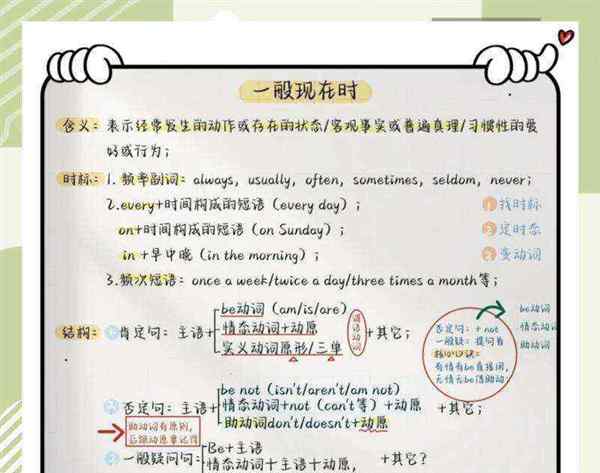 一般现在时
含义: 表示经常发生的动作或存在的状态/客观事实或普遍真理/习惯性的爱
好或行为;
时标: 1. 频率副词: always, usually, often, sometimes, seldom, never;
2.every+时间构成的短语 (every day) ;
① 找时标
on+时间构成的短语 (on Sunday) ;
② 定时态
in +早中晚 (in the morning) ;
③ 变动词
3.频次短语: once a week/twice a day/three times a month等;
结构: ① 肯定句: 主语+
be动词 (am/is/are)
情态动词+动原
实义动词原形/三单
谓语动词
+其它;
否定句: + not
一般疑: 提问首
核心口诀:
有情有be直接问,
无情无be借助动;
be动词
情态动词
助动词
② 否定句: 主语+
be not (isn't/aren't/am not)
情态动词+not (can't等) +动原
助动词don't/doesn't+动原
+其它;
助动词有原则,
后跟动原要记得
③ 一般疑问句:
Be+主语
情态动词+主语+动原,
+其它?